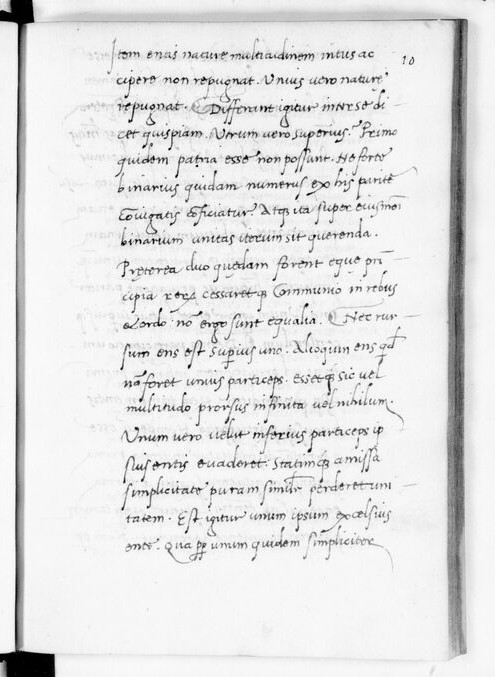 10
Item entis naturę multitudinem intus ac
cipere non repugnat. Unius vero naturę
repugnat. Differant igitur inter se di
cet quispiam. Utrum vero superius? Primo
quidem paria esse non possunt. Ne forte
binarius quidam numerus ex his pariter
coniugatis conficiatur. Atq; ita super eiusmoi
binarium unitas iterum sit querenda.
Pręterea duo quędam forent ęque prī
cipia rerū cessaretq; Communio in rebus
& ordo. nō ergo sunt equalia. Nec rur
sum ens est supius uno. Alioquin ens qd
nā foret unius particeps. Essetq; sic vel
multitudo prorsus infinita vel nihilum.
Unum vero velut inferius particeps ip
sius entis evaderet. Statimq; amissa
simplicitate puram simlr perderet uni
tatem. Est igitur unum ipsum excelsius
ente. Qua pp unum quidem simpliciter